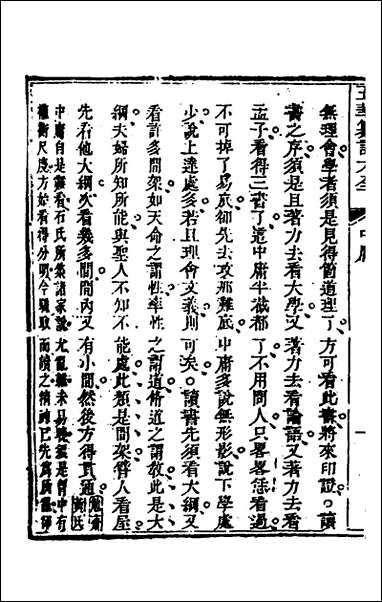 五華纂訂大全 中庸 一
無理會學者須是見得箇道理了方可看此書將來印證。讀
書之序須是且著力去看大學又著力去看論語又著力去看
孟子看得三書了這中庸半截都了不用問人只畧畧恁看過
不可掉了易底卻先去攻那難底中庸多說無形影說下學處
少說上達處多若且理會文義則可矣。讀書先須看大綱又
看許多間架如天命之謂性率性之謂道修道之謂教此是大
綱夫婦所知所能與聖人不知不能處此類是間架譬人看屋
先看他大綱次看幾多間間內又有小間然後方得貫通 勉齋
黃氏
中庸自是難看石氏所集諸家說尤亂雜未易曉須是胸中有
權衡尺度方始看得分明今驟取而讀之精神已先為所亂卻